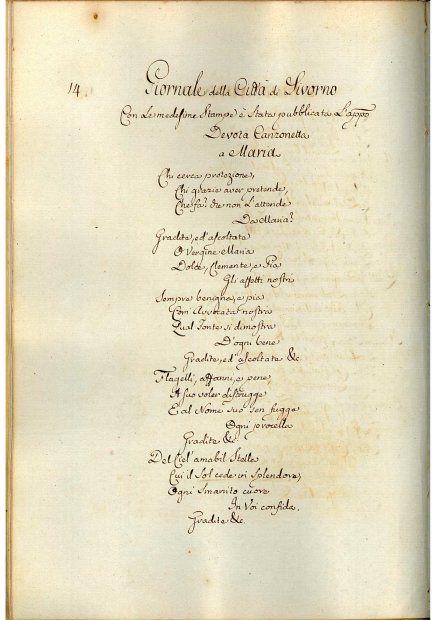 14.
Giornale della Città di Livorno
Con Le medesime Stampe è Stata pubblicata L'appo
Devota Canzonetta
a Maria
Chi cerca protezione,
Chi grazie aver pretende,
Che fa? che non L'attende
Da Maria?
Gradite, ed ascoltate
O Vergine Maria
Dolce, Clemente, e Pia
Gli affetti nostri
Sempre benigna, e pia
Com' Avvocata nostra
Qual Fonte si dimostra
D'ogni bene
Gradite, ed ascoltate &c.
Flagelli, affanni, e pene,
A suo voler distrugge
E al Nome suo sen fugge
Ogni procella
Gradite &c.
Del Ciel' amabil Stella
Cui il Sol cede in splendore,
Ogni Smarrito cuore
In Voi confida,
Gradite &c.